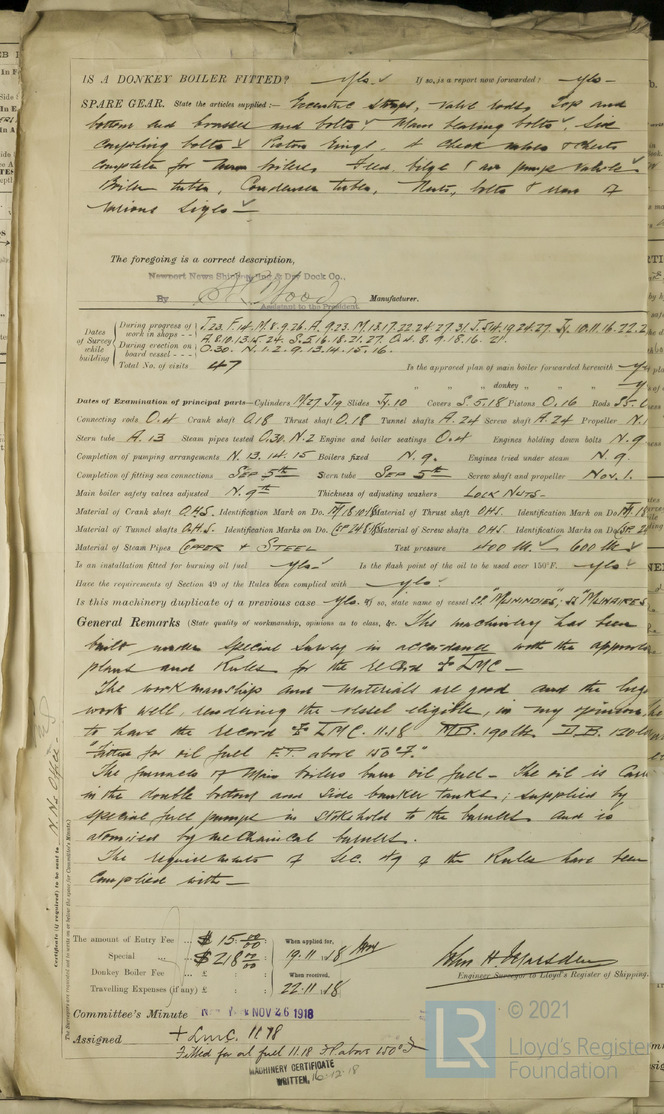 IS A DONKEY BOILER FITTED? Yes ✓ If so, is a report now forwarded? Yes —
SPARE GEAR. State the articles supplied :— Eccentric straps, valve rods, Top and
bottom end brasses and bolts ✓, Main bearing bolts ✓, Six
coupling bolts ✓ Piston rings, & check valves & seats
complete for main boilers. Feed, bilge & air pump valves ✓
Boiler tubes, Condenser tubes, Nuts, bolts & iron of
various sizes ✓ —
The foregoing is a correct description,
Newport News Shipbuilding & Dry Dock Co.,
By Manufacturer.
Assistant to the President.
Dates of Survey while building
During progress of work in shops - - J.23. F.14. M.8.9.26. A.9.23. M.13.17.22.24.27.31. J.5.14.19.24.27. Jy.10.11.16.22.2
During erection on board vessel - - - A.8.10.13.15.24. S.5.16.18.21.27. O.4.8.9.18.16.21.
O.30. N.1.2.9.13.14.15.16.
Total No. of visits 47 Is the approved plan of main boiler forwarded herewith
" " " donkey " " "
Dates of Examination of principal parts—Cylinders M27 J19 Slides Jy.10 Covers S.5.18 Pistons O.16 Rods
Connecting rods O.4 Crank shaft O.18 Thrust shaft O.18 Tunnel shafts A.24 Screw shaft A.24 Propeller N.1
Stern tube A.13 Steam pipes tested O.30. N.2 Engine and boiler seatings O.4 Engines holding down bolts N.9
Completion of pumping arrangements N.13.14.15 Boilers fixed N.9. Engines tried under steam N.9.
Completion of fitting sea connections Sep 5th Stern tube Sep 5th Screw shaft and propeller Nov. 1.
Main boiler safety valves adjusted N.9th Thickness of adjusting washers Lock Nuts —
Material of Crank shaft O.H.S. Identification Mark on Do. Material of Thrust shaft OHS. Identification Mark on Do.
Material of Tunnel shafts O.H.S. Identification Marks on Do. Material of Screw shafts OHS. Identification Marks on Do.
Material of Steam Pipes Copper & Steel Test pressure 400 lb. ✓ 600 lb ✓
Is an installation fitted for burning oil fuel Yes ✓ Is the flash point of the oil to be used over 150°F. Yes ✓
Have the requirements of Section 49 of the Rules been complied with Yes ✓
Is this machinery duplicate of a previous case Yes. If so, state name of vessel S.S. "Munindies", SS "Munaires
General Remarks (State quality of workmanship, opinions as to class, &c. The machinery has been
built under Special Survey in accordance with the approved
plans and Rules for the record of LMC —
The workmanship and materials are good and the
work well, rendering the vessel eligible, in my opinion
to have the record of LMC. 11.18 MB. 190 lb. D.B. 120 lb
"Fitted for oil fuel F.P. above 150°F."
The furnaces of Main boilers burn oil fuel — The oil is
in the double bottom and side bunker tanks; supplied by
special fuel pumps in stokehold to the burners and is
atomised by mechanical burners.
The requirements of Sec. 49 of the Rules have been
complied with —
Certificate (if required) to be sent to N. Ns Office.
The amount of Entry Fee ... $ 15.00/00 When applied for,
Special ... ... $ 218.00/00 19.11.18
Donkey Boiler Fee ... £ : : When received,
Travelling Expenses (if any) £ : : 22.11.18
John H. Marsden
Engineer Surveyor to Lloyd's Register of Shipping.
Committee's Minute NOV 26 1918
Assigned + LMC. 11.18
Fitted for oil fuel 11.18 F.P. above 150°F
MACHINERY CERTIFICATE
WRITTEN, 16.12.18
© 2021
Lloyd's Register
Foundation